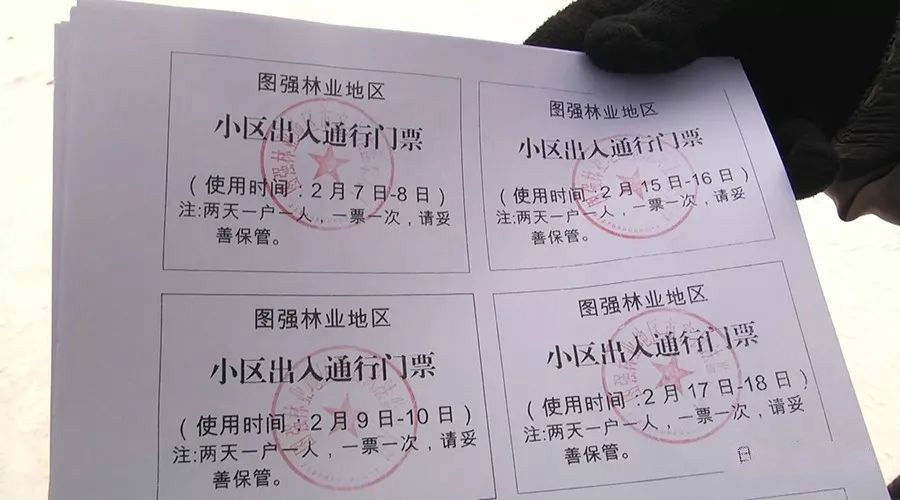 图强林业地区
小区出入通行门票
(使用时间:2月7日-8日)
注:两天一户一人,一票一次,请妥
善保管。
图强林业地区
小区出入通行门票
(使用时间:2月15日-16日)
注:两天一户一人,一票一次,请妥
善保管。
图强林业地区
小区出入通行门票
(使用时间:2月9日-10日)
注:两天一户一人,一票一次,请妥
善保管。
图强林业地区
小区出入通行门票
(使用时间:2月17日-18日)
注:两天一户一人,一票一次,请妥
善保管。